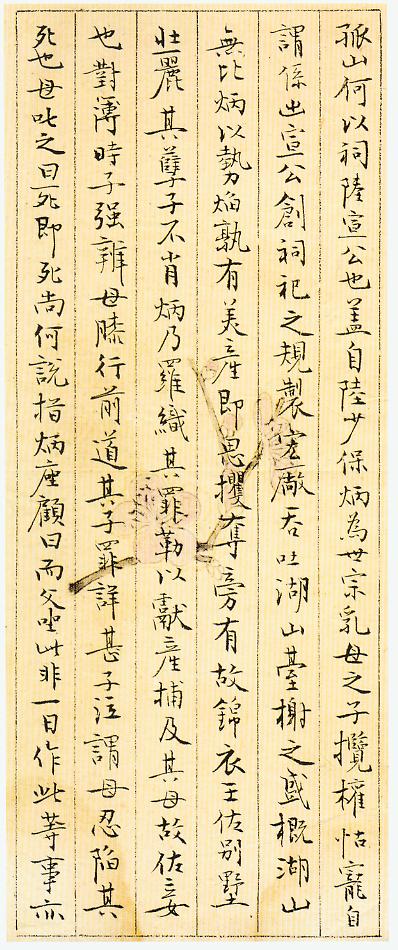 孤山何以祠陸宣公也盖自陸少保炳為世宗乳母之子攬權怙寵自
謂係出宣公創祠祀之規製宏廠吞吐湖山臺榭之盛概湖山
無比炳以勢焰孰有美産即思攫奪旁有故錦衣王佐別墅
壯麗其孽子不肖炳乃羅織其罪勒以獻産捕及其母故佐妾
也對薄時子强辨母膝行前道其子罪詳甚子泣謂母忍陷其
死也母叱之曰死即死尚何說指炳座顧曰而父坐此非一日作此等事亦